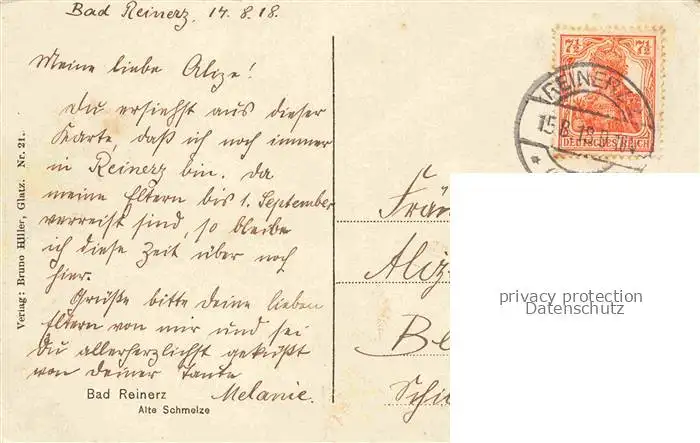 Bad Reinerz, 14. 8. 18.
Meine liebe Alize!
Du ersiehst aus dieser
Karte, daß ich noch immer
in Reinerz bin. Da
meine Eltern bis 1. September
verreist sind, so bleibe
ich diese Zeit über noch
hier.
Grüße bitte deine lieben
Eltern von mir und sei
Du allerherzlichst geküßt
von deiner Tante
Melanie.
Bad Reinerz
Alte Schmelze
Verlag: Bruno Hiller, Glatz. Nr. 21.
7½ 7½
DEUTSCHES REICH
REINERZ
15.8.18.9-10V
Fräu
Aliz
Be
Schi
privacy protection
Datenschutz